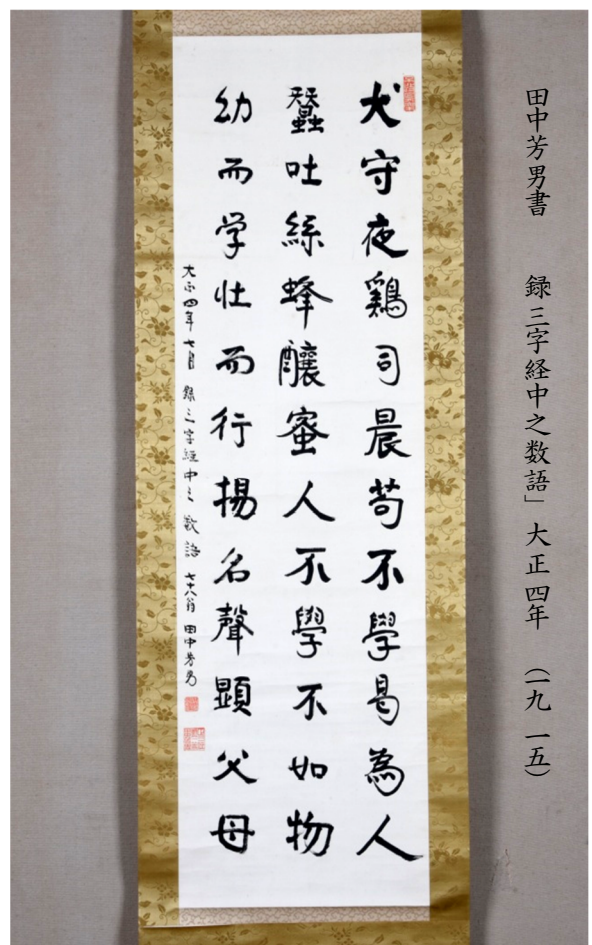 田中芳男書　録三字経中之数語」大正四年　（一九一五）
犬守夜鶏司晨苟不學曷為人
蠶吐絲蜂釀蜜人不學不如物
幼而学壮而行揚名聲顕父母
大正四年七月 録三字經中之數語 七十八翁 田中芳男